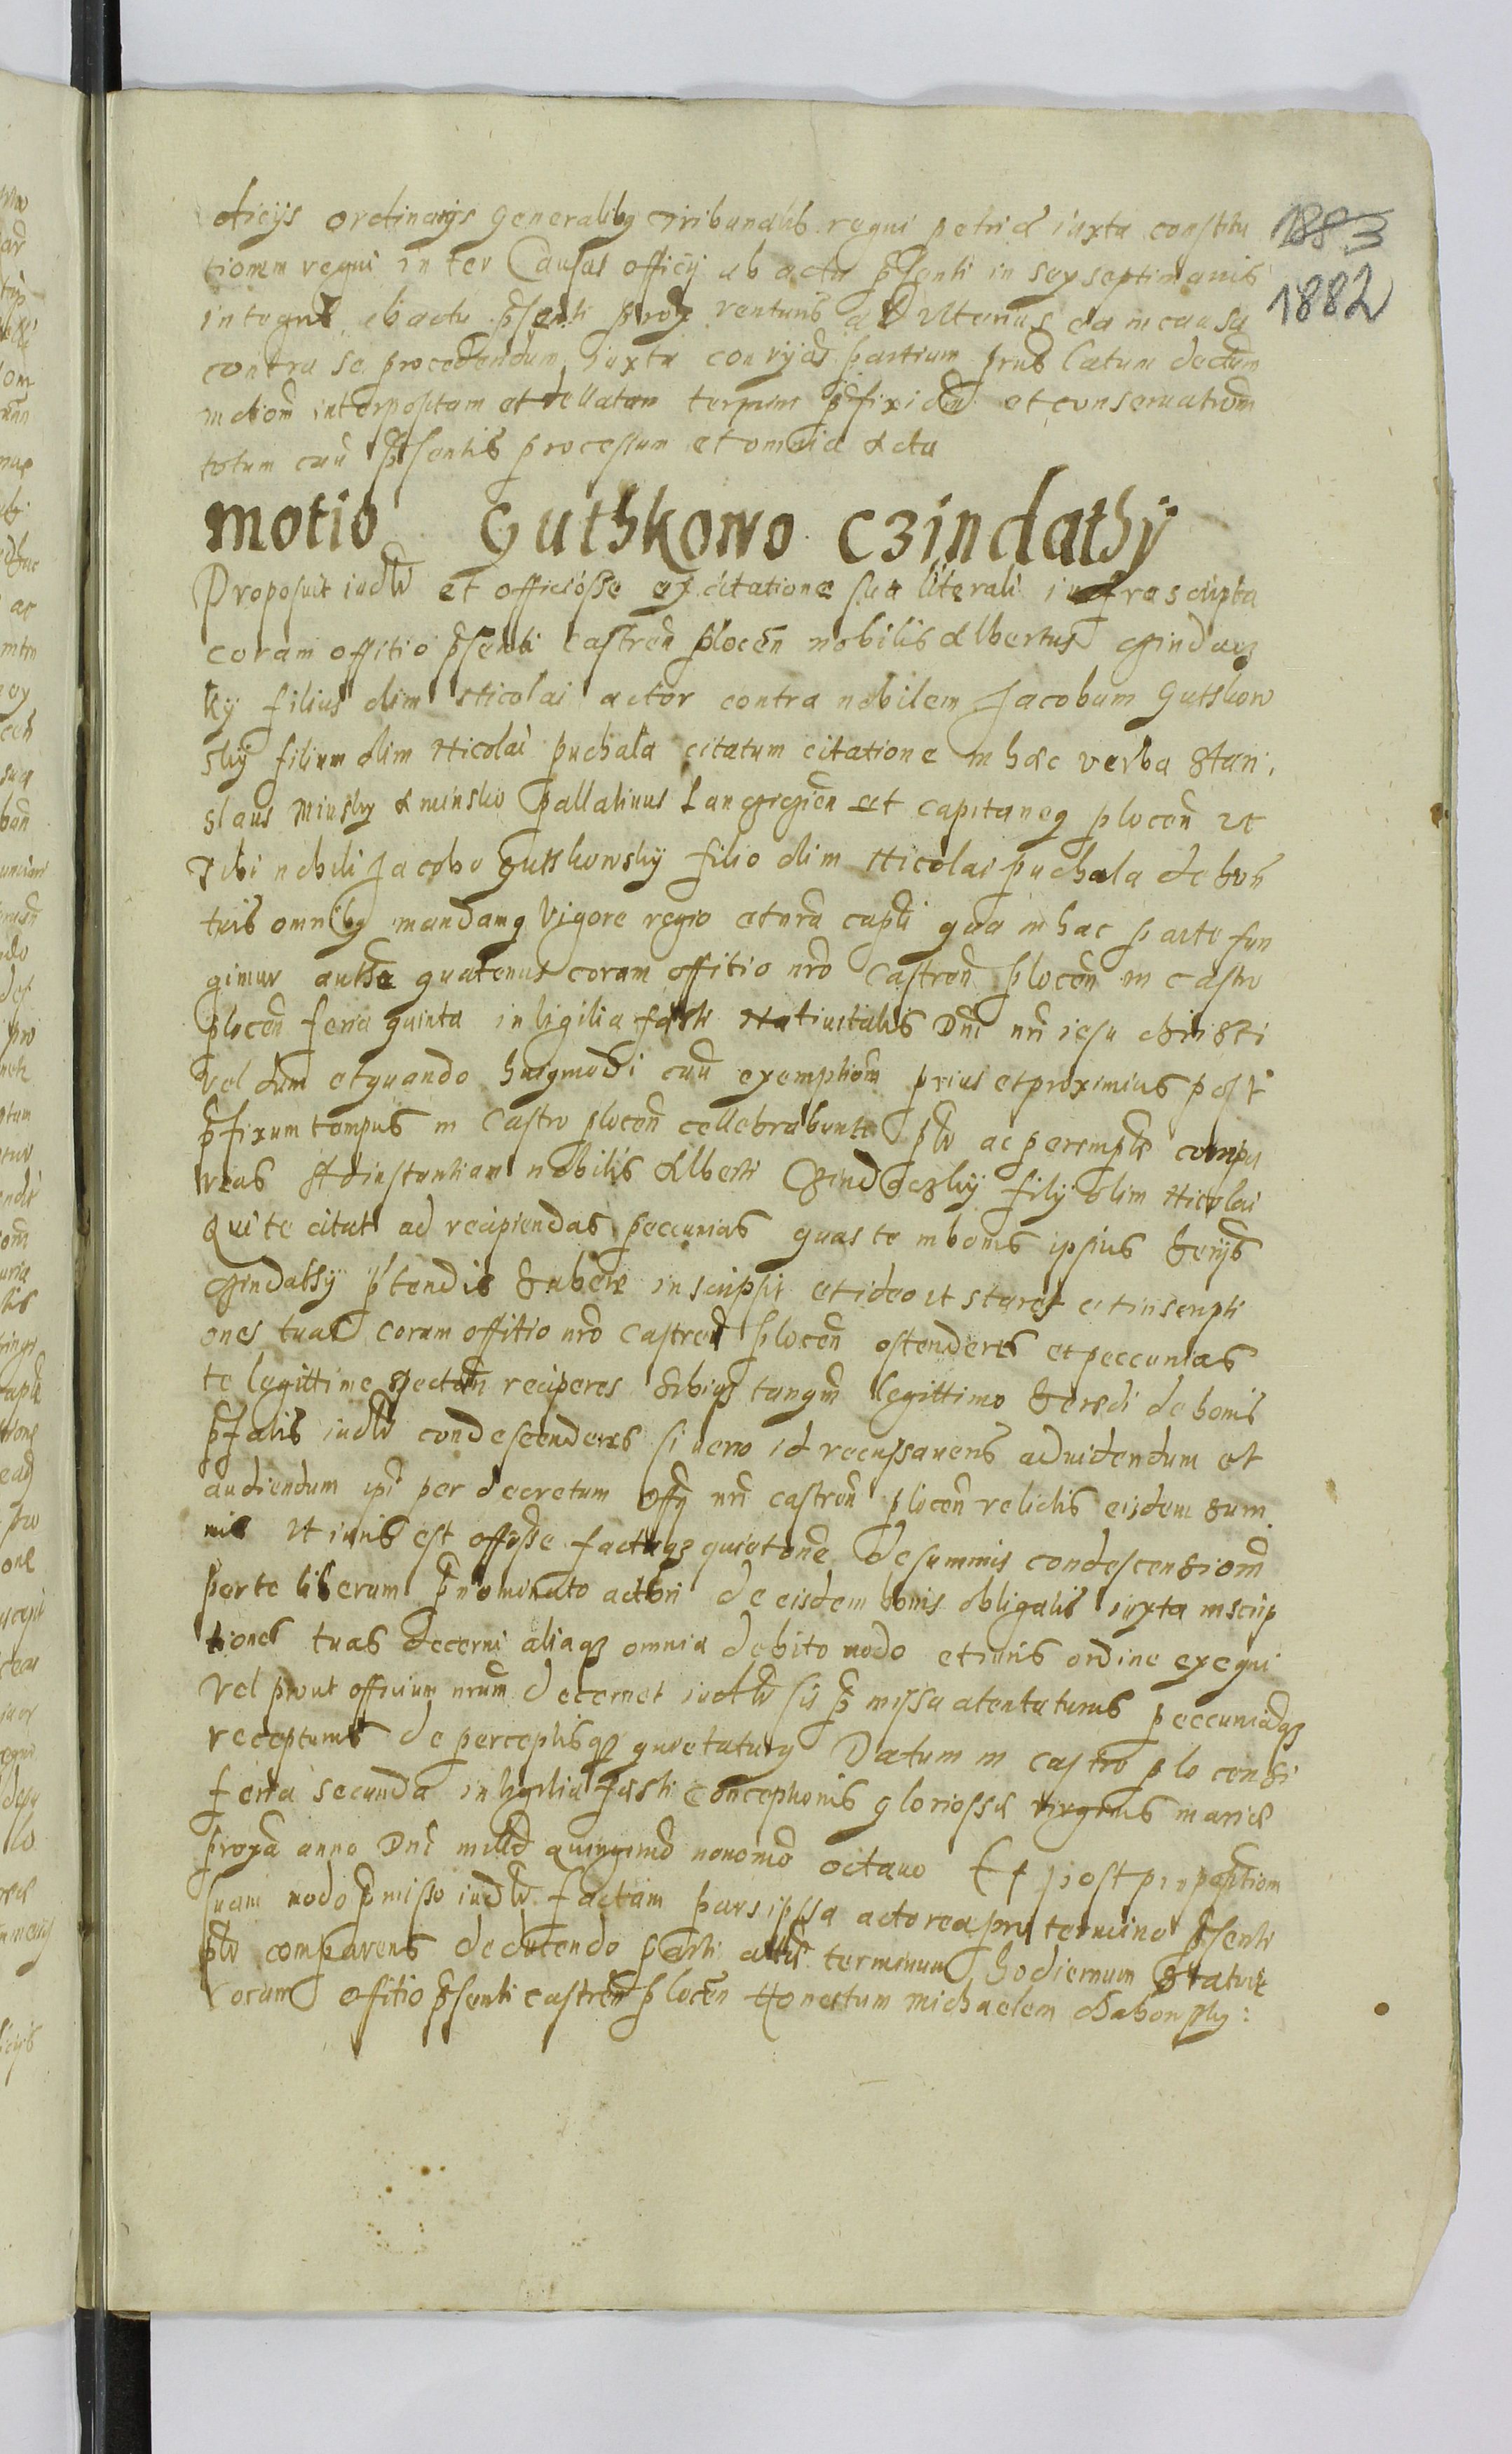 diciis ordinarijs Generalibq Tribunalis regni petrid iuxta constitu
tionem regni inter Causas officij ab actu pñsenti in sex septimanis
integris ab actu pñsenti prox venturis ad vlterius ea in causa
contra se procedendum iuxta partium prius latum decretum
interpositam et dellatam termini pfixi et conseruatiom
totum cuũ pñsentis processum et omnia acta
1883
1882
motio Guthkowo Czindathÿ
Proposuit iudłr et officiosse ex citatione sua literali infrascripta
coram offitio pñsenti Castreñ ploceñ nobilis Albertus Czindacz
ky filius olim Nicolai actor contra nobilem Jacobum Gutskow
sky filium olim Nicolai puchala citatum citatione in hæc verba Stani
slaus Minsky de minsko pallatinus Lancziczieñ et capitaneq ploceñ
Tibi nobili Jacobo Gutskowsky filio olim Nicolai puchala de bon
tuis omnibq mandamq Vigore regio et nrã capli qua in hac parte fun
gimur authe quatenus coram offitio nrõ Castreñ ploceñ in castro
ploceñ feria quinta in Vigilia festi Natiuitatis Dni nri iesu christi
vel dum et quando huiqmodi cum exemptiom prius et proximius post
pfixum tempus in Castro ploceñ cellebrabunt płr ac peremptłr compa
reas Ad instantiam nobilis Alberti Czindaczky filij olim Nicolai
Qui te citat ad recipiendas peccunias quas te in bonis ipsius
Czindathy ptendis habere inscriptas et ideo ut stares et inscripti
ones tuas coram offitio nrõ Castreñ ploceñ ostenderes et peccunias
te legittime reciperes sibiqz tanqm legittimo heredi de bonis
pfatis iudłr condescenderes si vero id recussaueris ad videndum et
audiendum ipi per decretum offij nri castreñ ploceñ relictis eisdem sum
mis ut iuris est offosse factaqz quietatone de summis condescensiom
per te liberam pnominato actori de eisdem bonis obligatis iuxta inscrip
tiones tuas decerni aliaqz omnia debito modo et iuris ordine exequi
Vel prout officium nrum decernet iudłr sis pmissa atentaturus peccuniasqz
recepturus de perceptisqz quietaturq Datum in castro plocensi
feria secunda in Vigilia festi Conceptionis gloriossæ virginis mariæ
proxa anno Dni millo quingmo nonomo octauo Et post propoptiom
suam modo pmisso iudłr factam pars ipssa actorea pro termino pñsenti
płr comparens deducendo parti terminum hodiernum Statuit
coram offitio pñsenti castreñ ploceñ Honestum michaelem